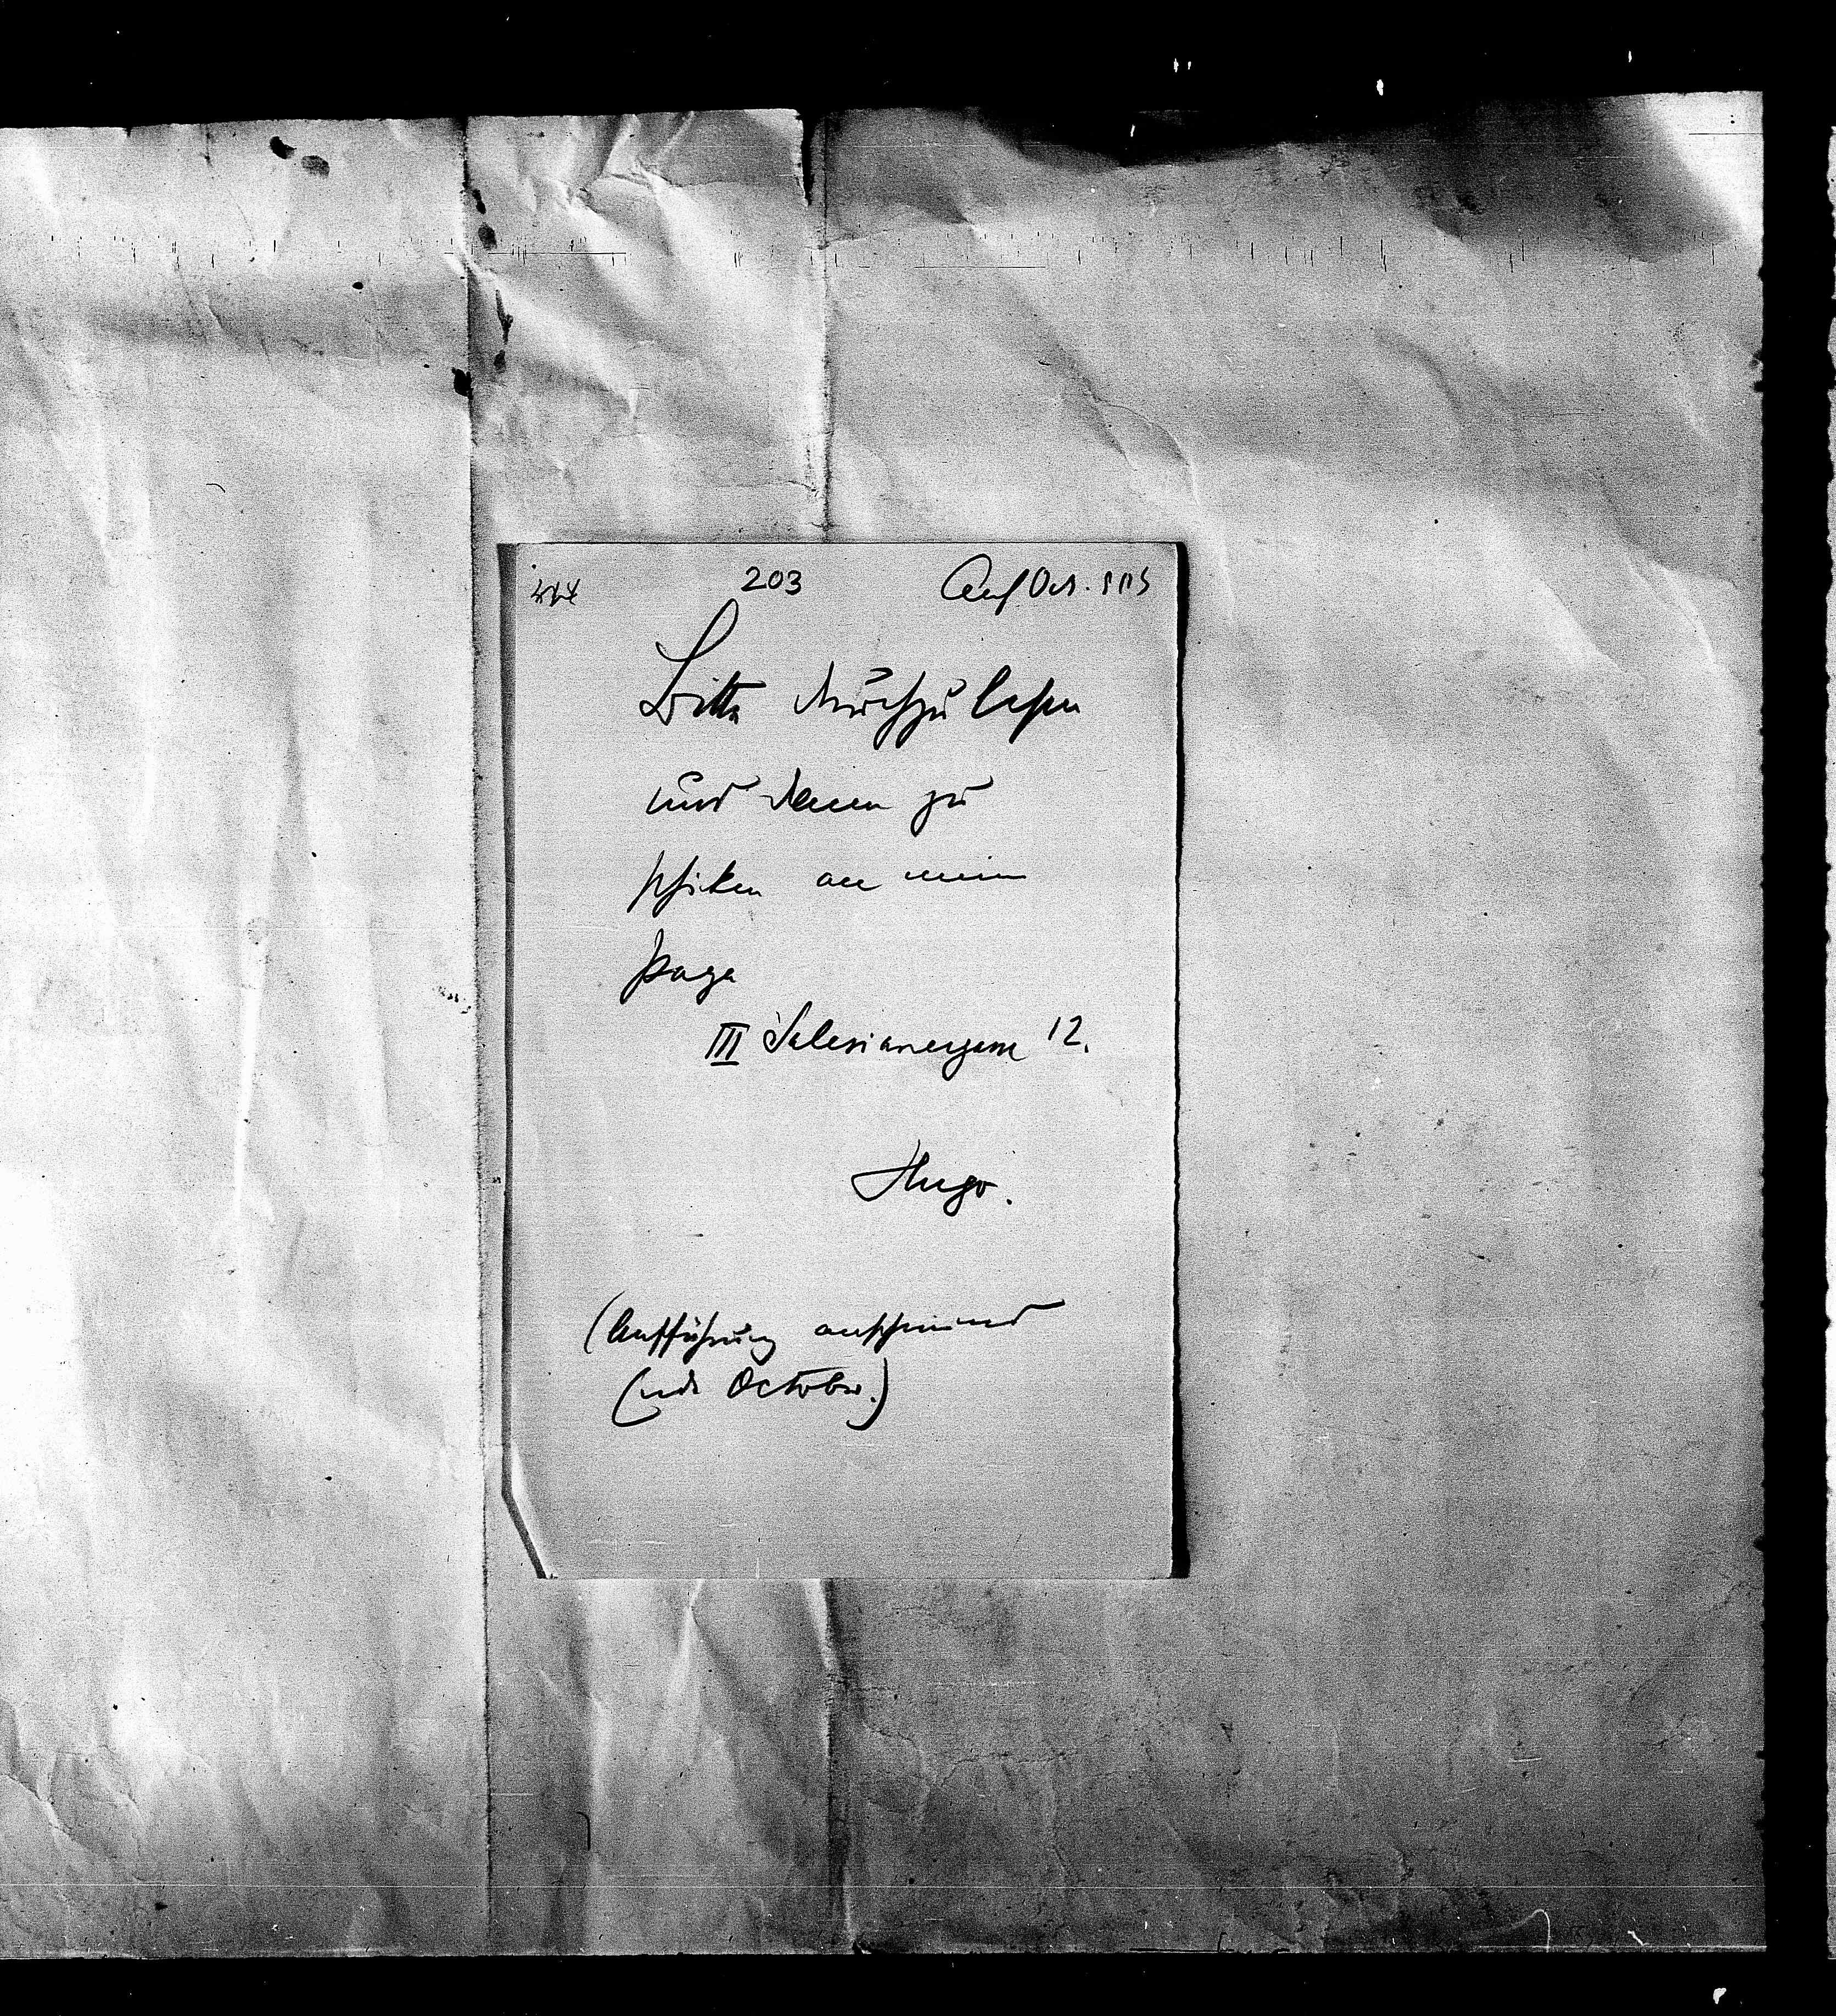 203 Anf Oct.
Bitte durchzulesen
und dann zu
schicken an mein
Papa
III Salesianergasse 12.
Hugo.
(Aufführung anscheinend
Ende October.)